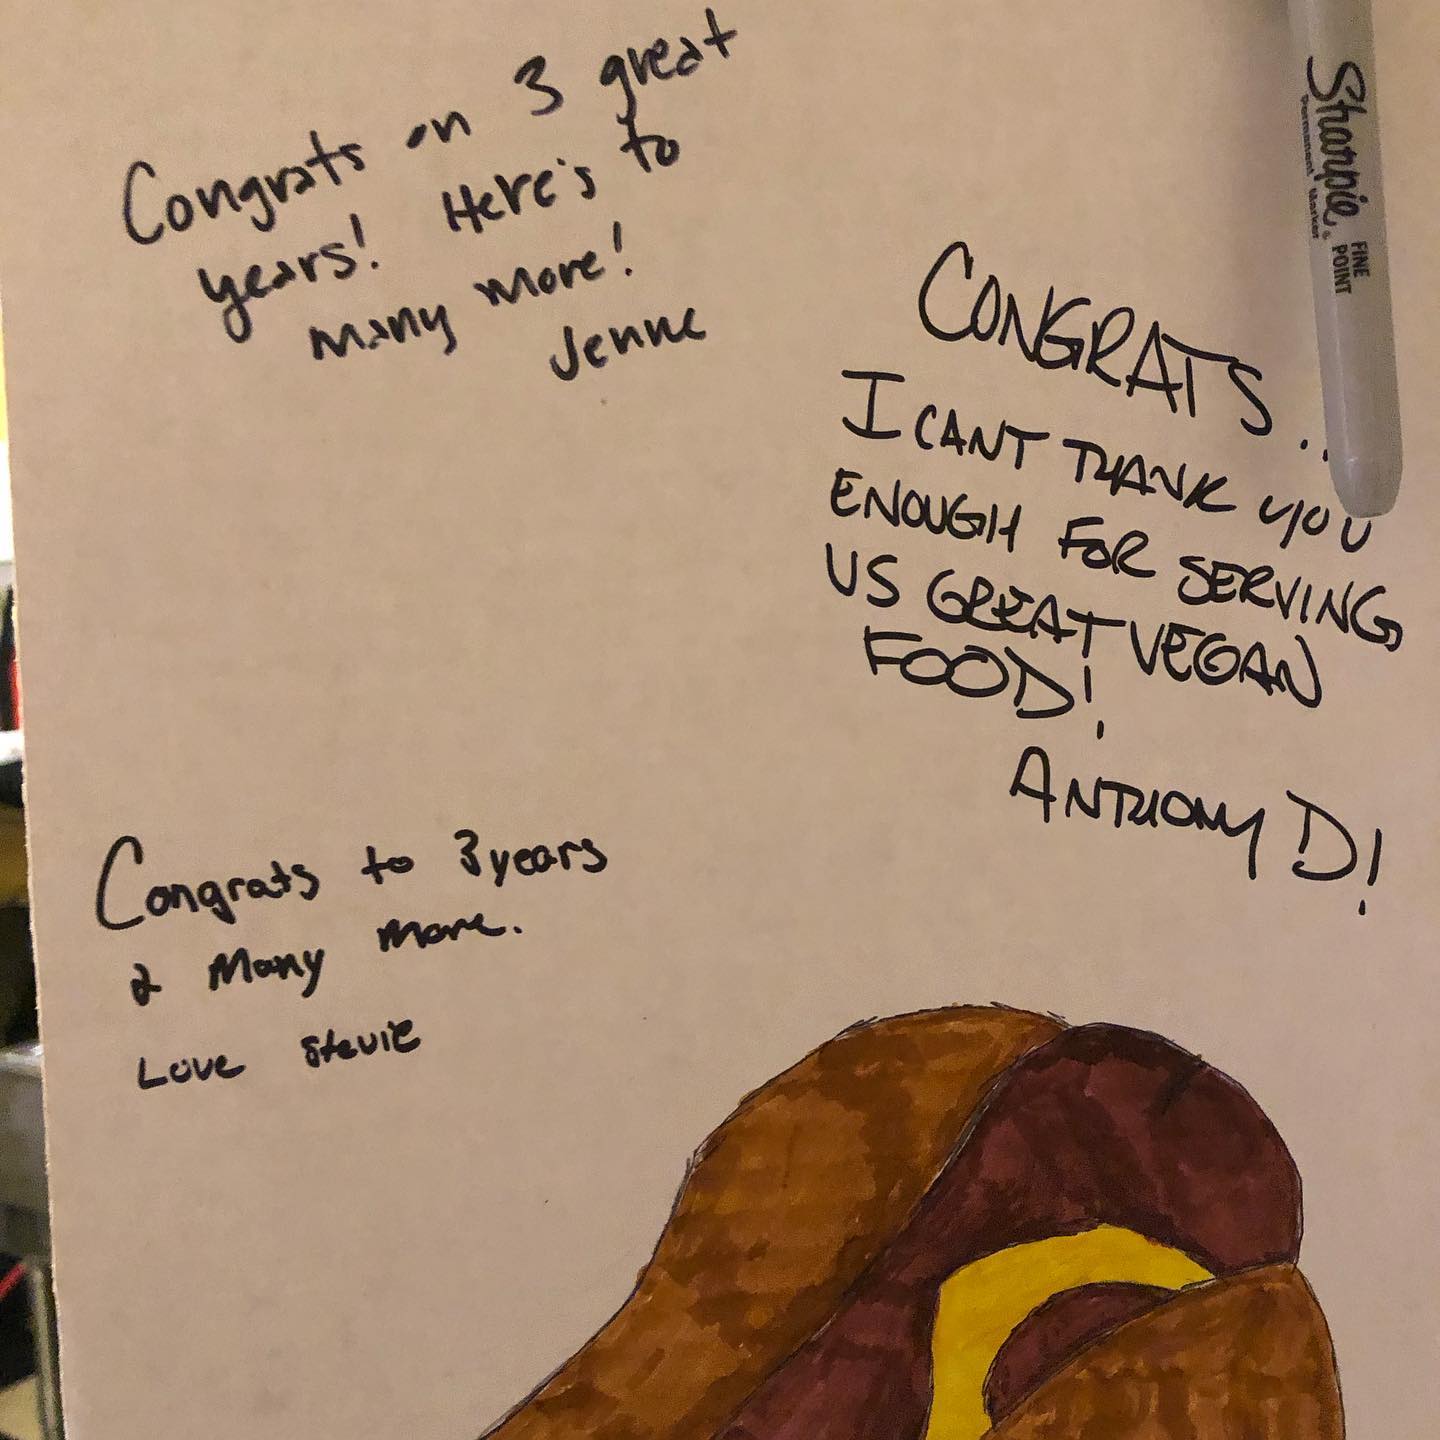 Congrats on 3 great
years! Here's to
many more!
Jenne
Sharpie
Permanent Marker
FINE
POINT
CONGRATS..
I CANT THANK YOU
ENOUGH FOR SERVING
US GREAT VEGAN
FOOD!
ANTHONY D!
Congrats to 3 years
2 Many more.
Love Stevie